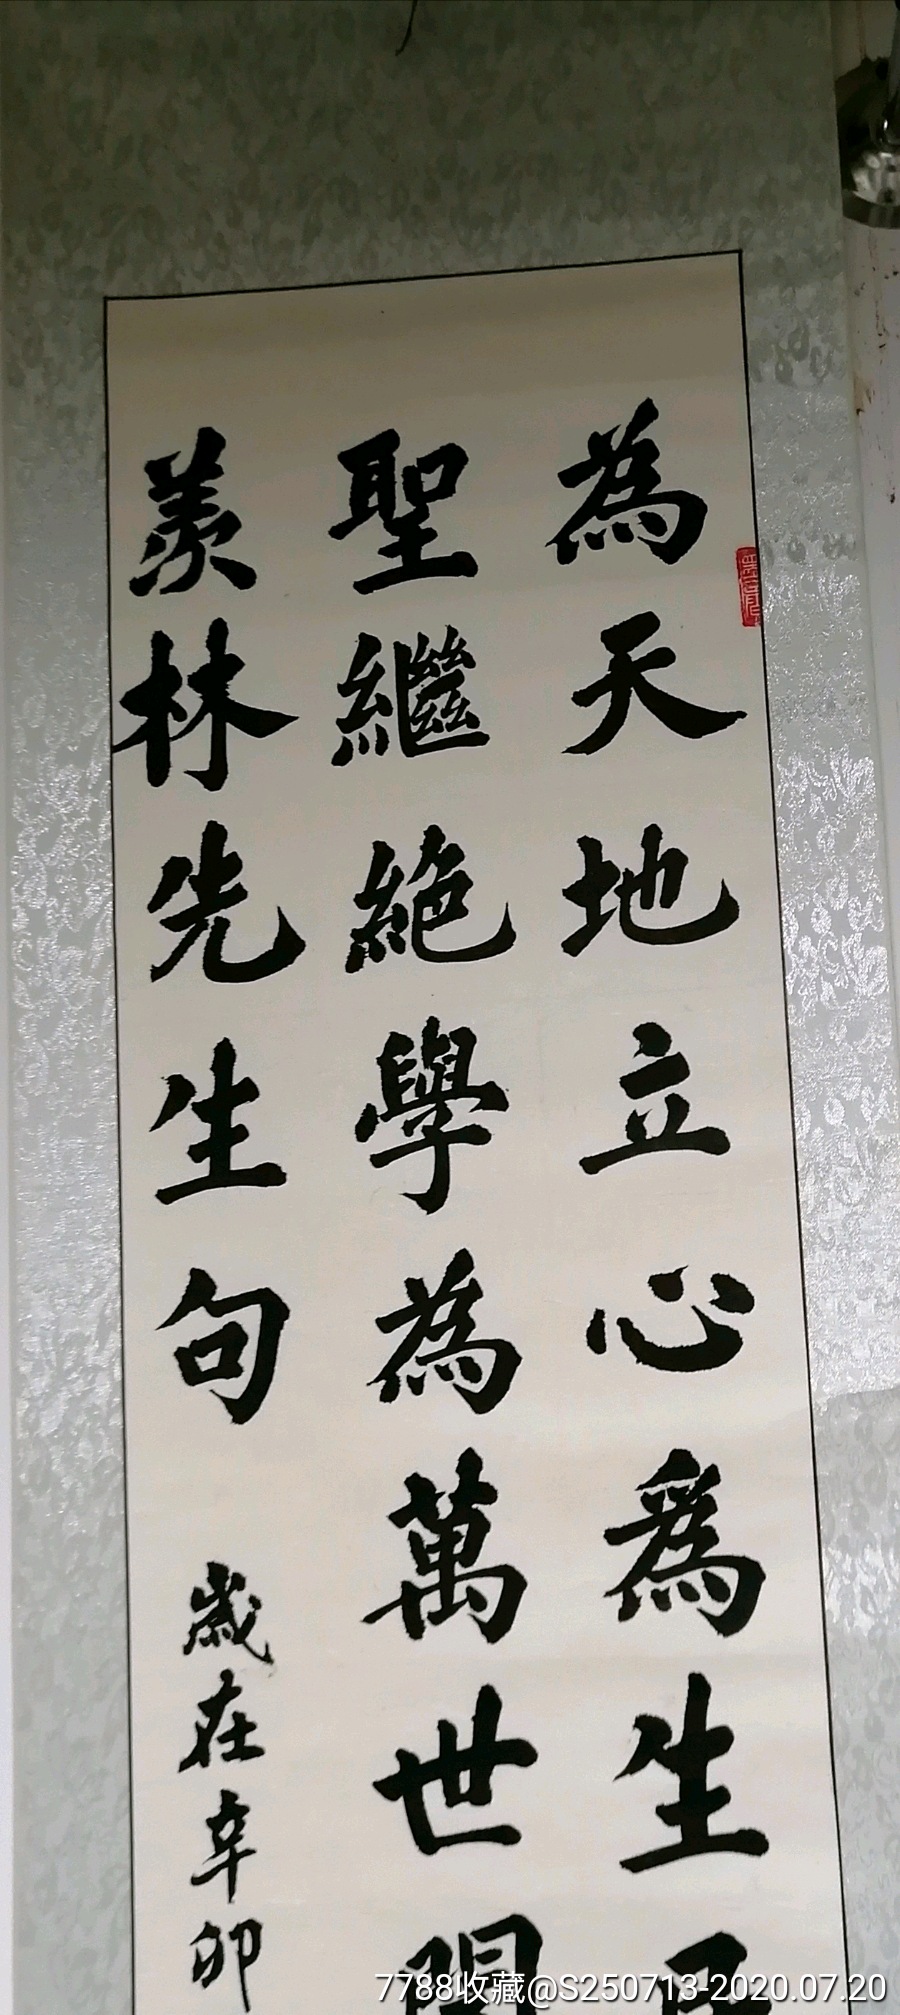 為天地立心為生民
聖繼絶學為萬世開
羨林先生句 歲在辛卯
7788收藏@S250713-2020.07.20